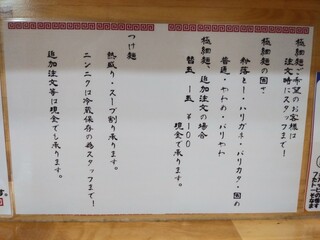 極細麺ご希望のお客様は
注文時にスタッフまで！
極細麺の固さ
粉落とし・ハリガネ・バリカタ・固め
普通・やわめ・バリやわ
極細麺、追加注文の場合
替玉 一玉 ¥100
現金で承ります。
つけ麺
熱盛り・スープ割り承ります。
ニンニクは冷蔵保存の為スタッフまで！
追加注文等は現金でも承ります。